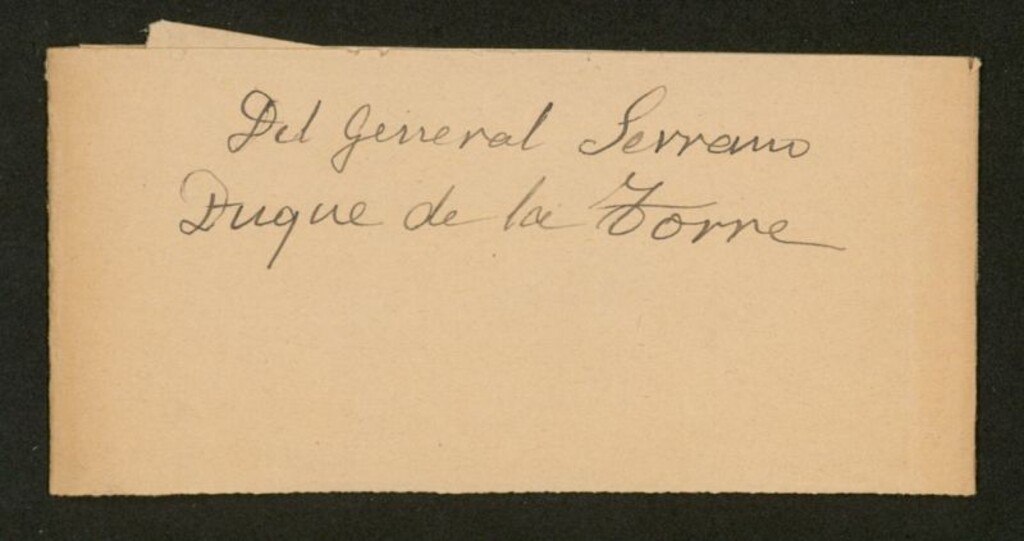 Del General Serrano
Duque de la Torre